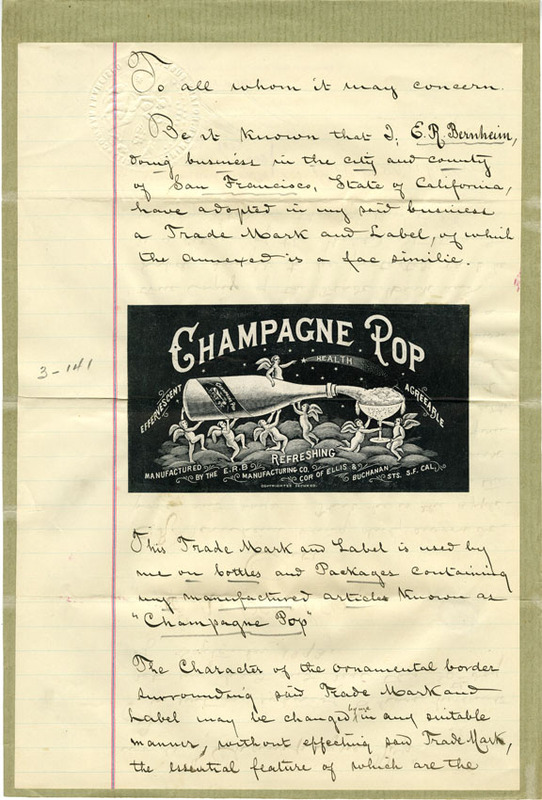 To all whom it may concern.
Be it Known that I, E.R. Bernheim,
doing business in the city and county
of San Francisco, State of California,
have adopted in my said business
a Trade Mark and Label, of which
the annexed is a fac similie.
3-141
CHAMPAGNE POP
HEALTH
EFFERVESCENT
AGREEABLE
REFRESHING
MANUFACTURED BY THE E.R.B. MANUFACTURING CO. COR OF ELLIS & BUCHANAN STS. S.F. CAL.
This Trade Mark and Label is used by
me on bottles and Packages containing
my manufactured articles Known as
"Champagne Pop"
The Character of the ornamental border
surrounding said Trade Mark and
Label may be changed by me in any suitable
manner, without effecting said Trade Mark,
the essential feature of which are the